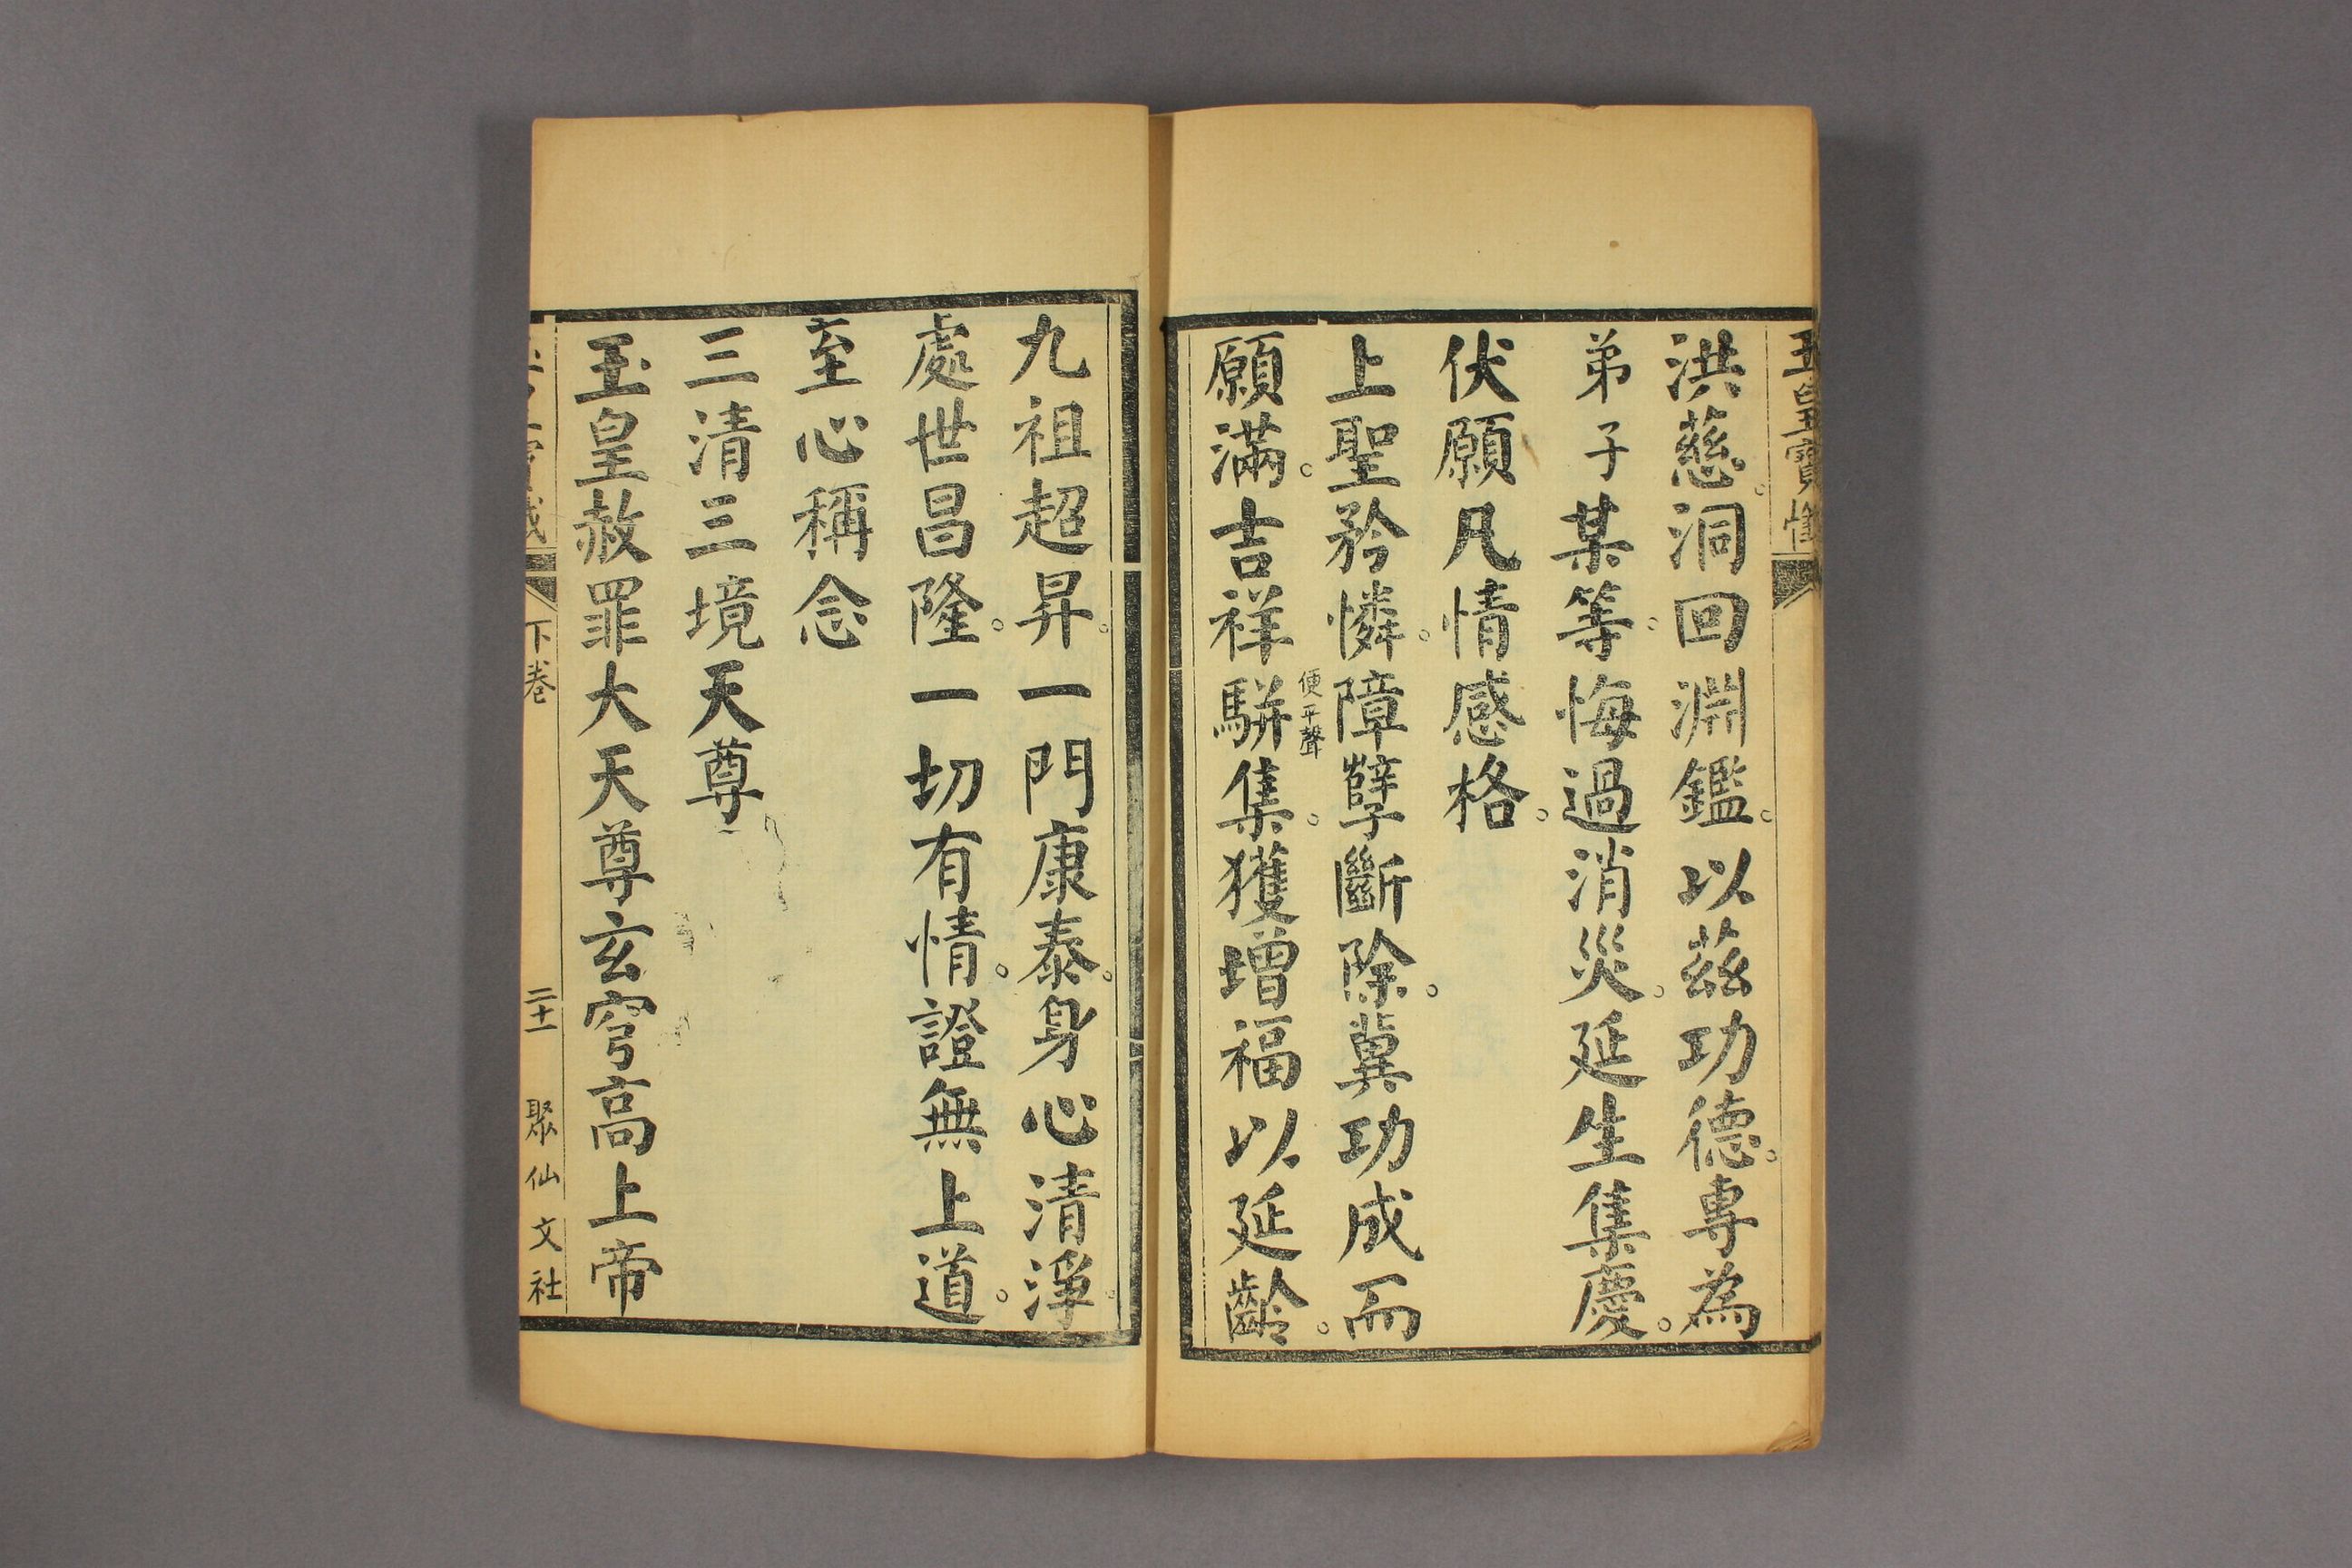 玉皇寶懺
洪慈。洞回淵鑑。以茲功德。專為
弟子某等。悔過消災。延生集慶。
伏願凡情感格。
上聖矜憐。障孽斷除。冀功成而
願滿。吉祥駢便平聲集。獲增福以延齡。
九祖超昇。一門康泰。身心清淨。
處世昌隆。一切有情。證無上道。
至心稱念
三清三境天尊
玉皇赦罪大天尊玄穹高上帝
下卷 二十一 聚仙文社